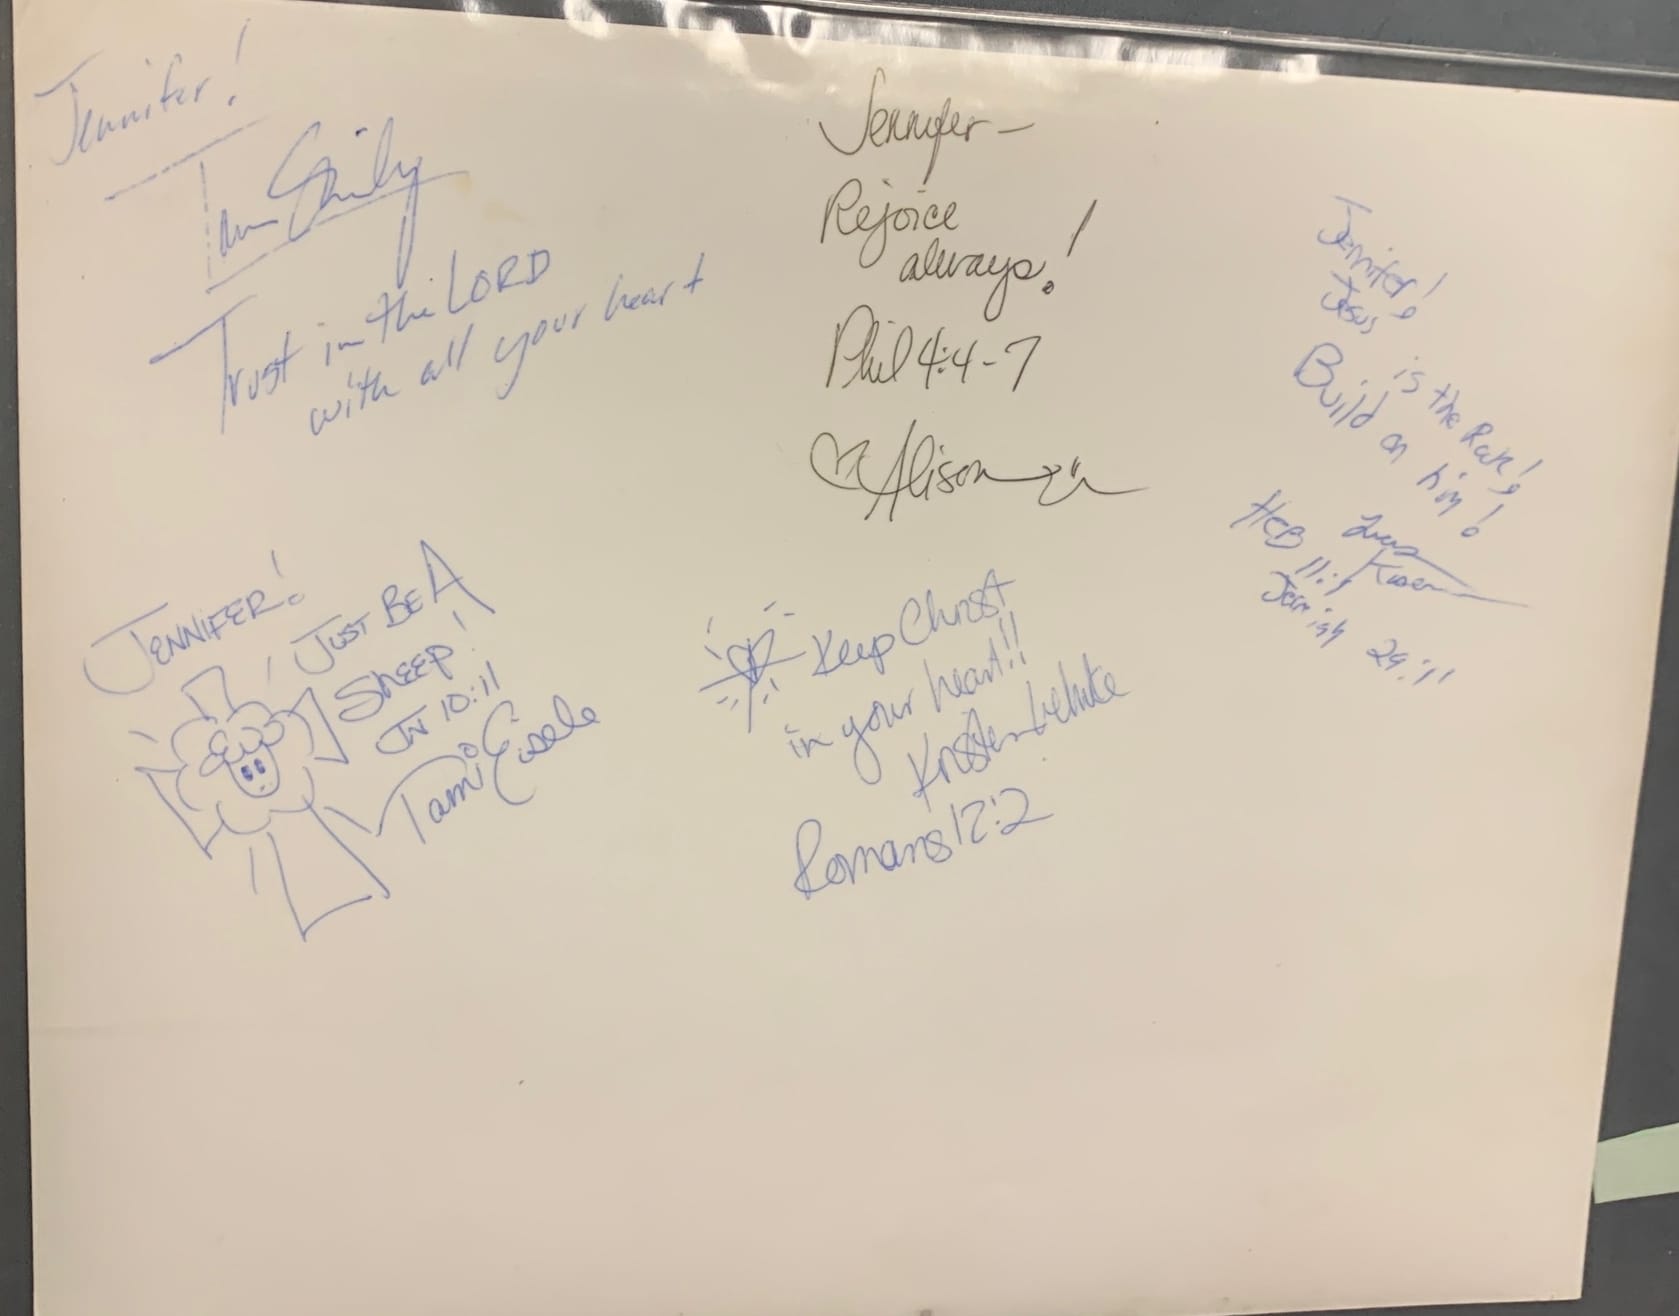 Jennifer!
Trust in the LORD
with all your heart
Jennifer-
Rejoice
always!
Phil 4:4-7
Alison
Jennifer!
Jesus
is the Rock!
Build on him!
HEB 11:1
29:11
JENNIFER!
JUST BE A
SHEEP!
JN 10:11
Tami Eisele
Keep Christ
in your heart!!
Kristen
Romans 12:2